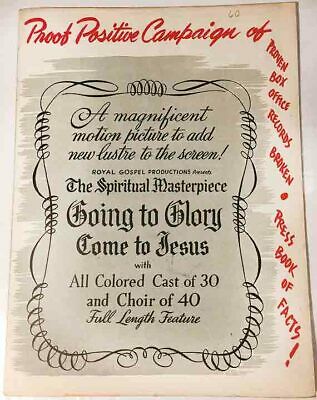 Proof Positive Campaign of
60
PROVEN
BOX
OFFICE
RECORDS
BROKEN •
PRESS
BOOK
OF
FACTS!
A magnificent
motion picture to add
new lustre to the screen!
ROYAL GOSPEL PRODUCTIONS Presents
The Spiritual Masterpiece
Going to Glory
Come to Jesus
with
All Colored Cast of 30
and Choir of 40
Full Length Feature